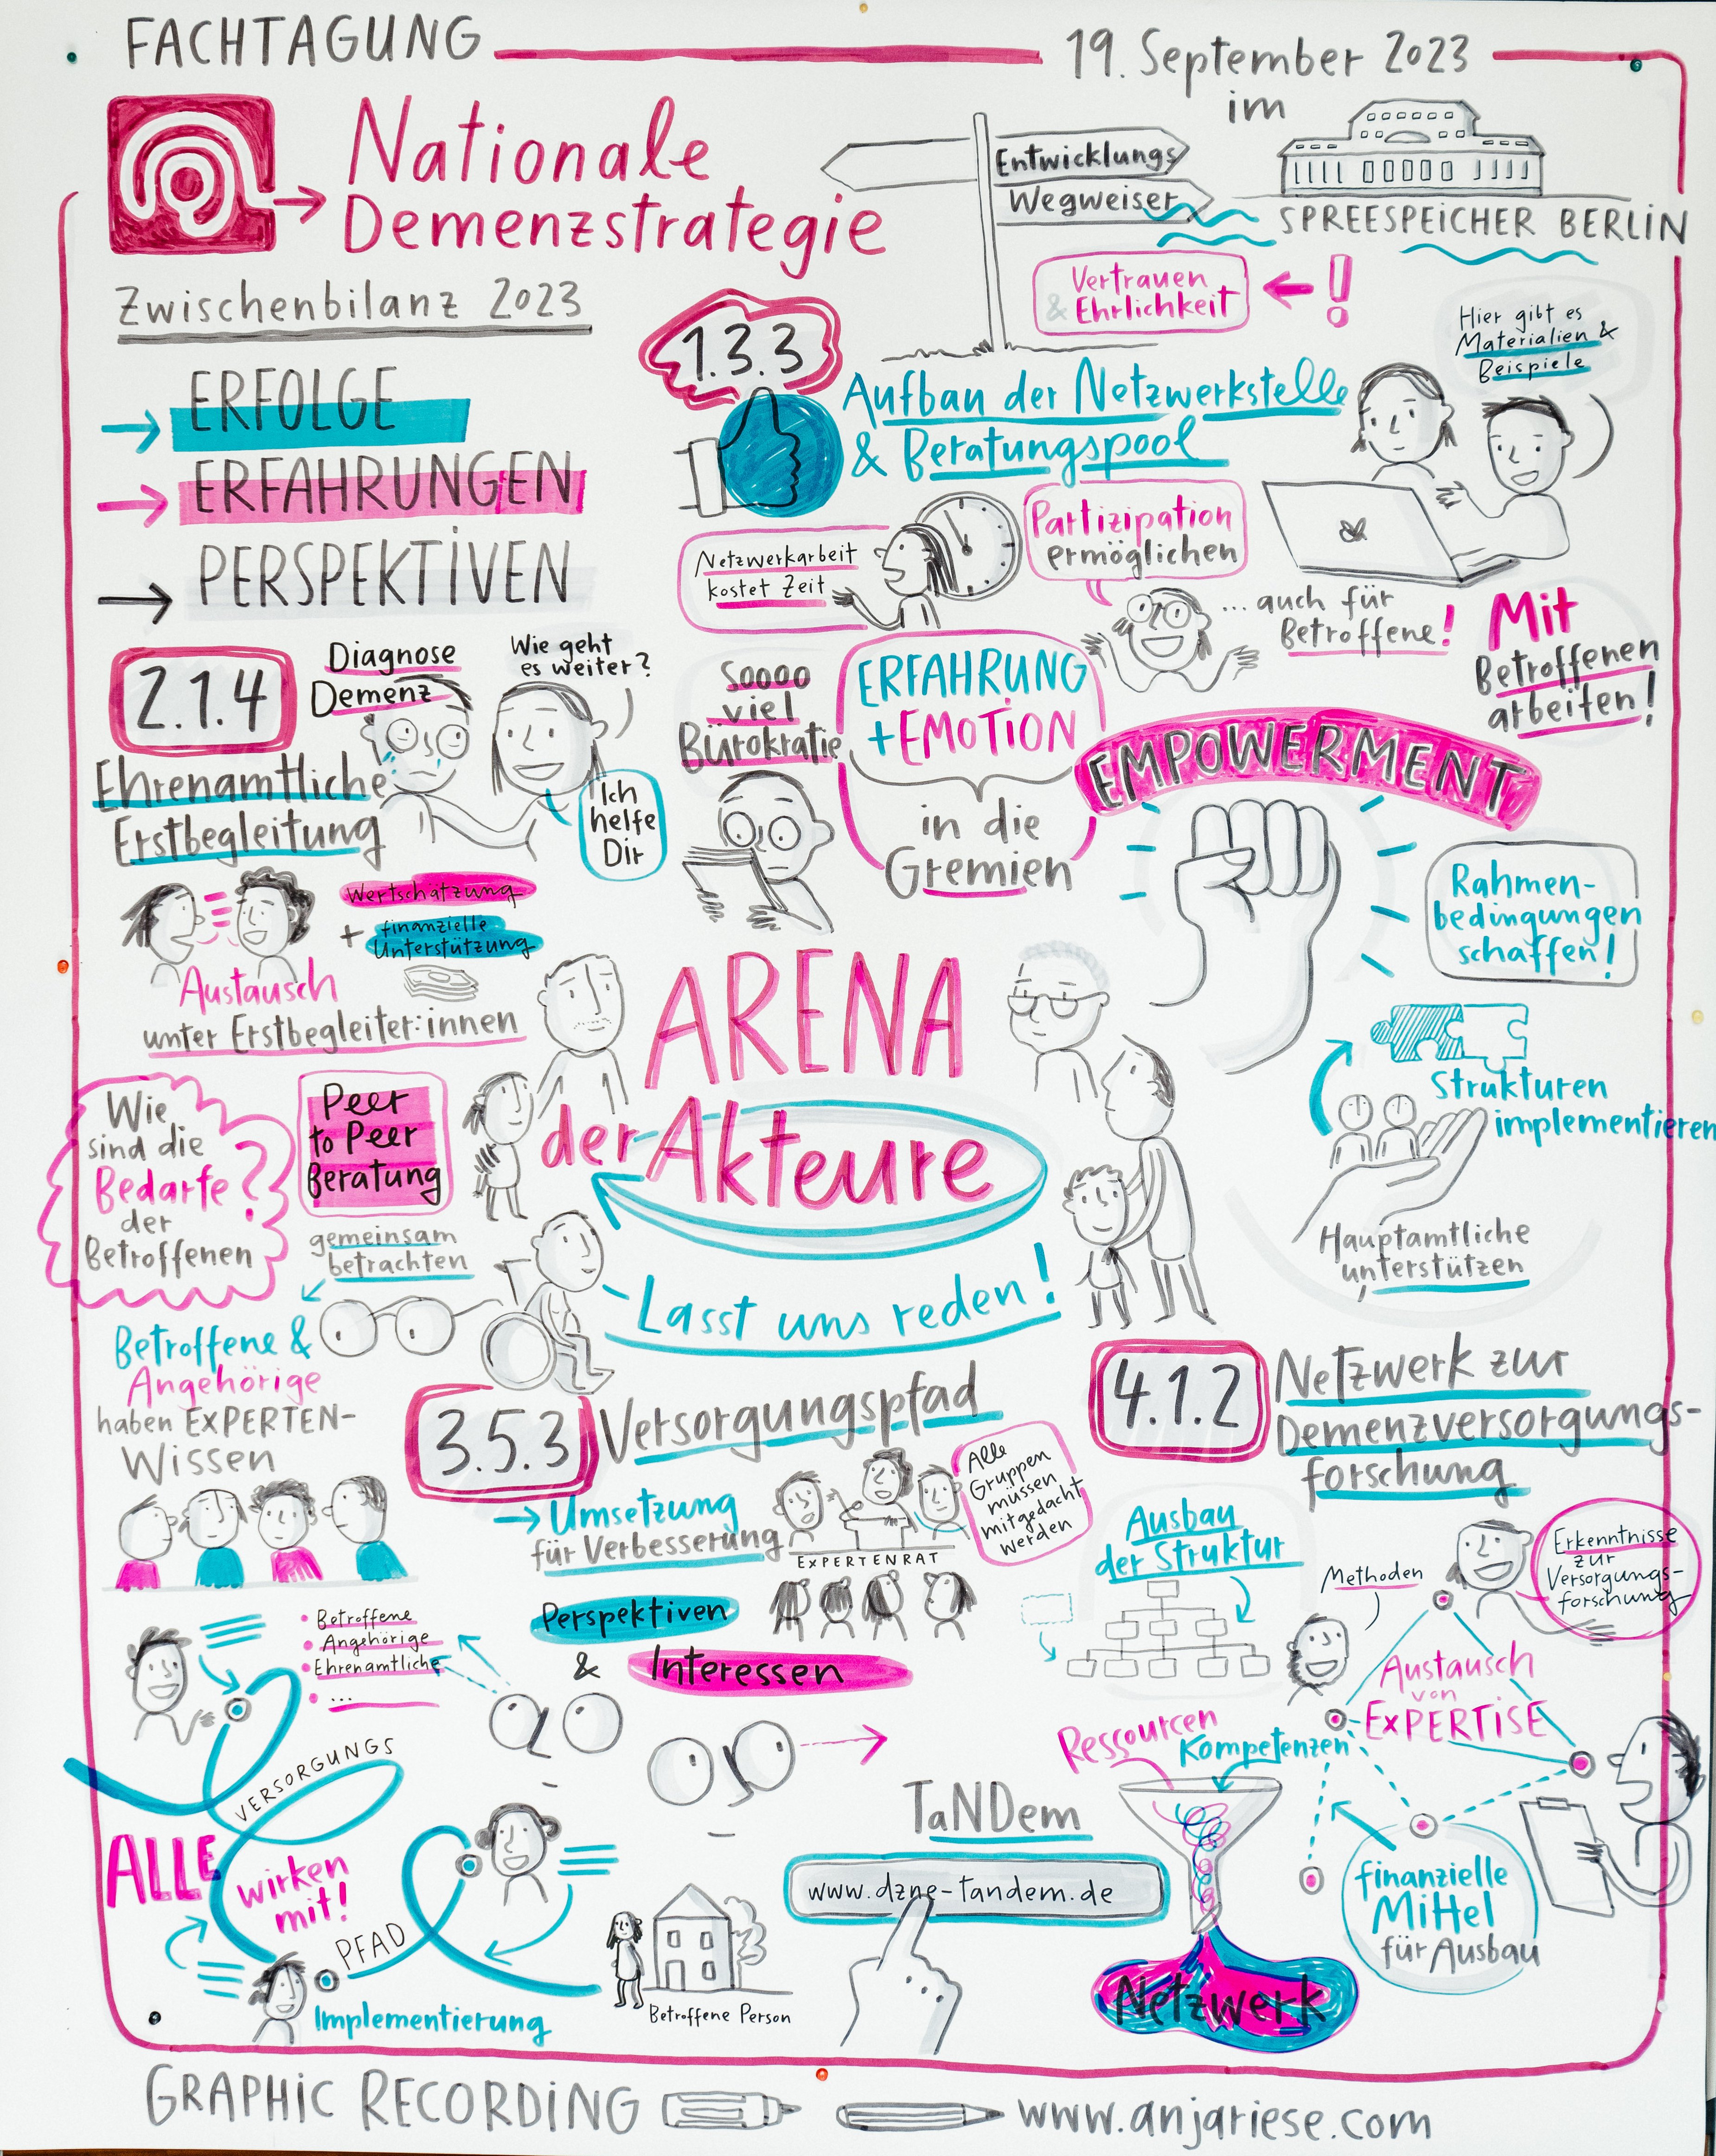 FACHTAGUNG
19. September 2023
im
SPREESPEICHER BERLIN
Nationale
Demenzstrategie
Zwischenbilanz 2023
Entwicklungs
Wegweiser
Vertrauen
& Ehrlichkeit
!
ERFOLGE
ERFAHRUNGEN
PERSPEKTIVEN
1.3.3
Aufbau der Netzwerkstelle
& Beratungspool
Hier gibt es
Materialien &
Beispiele
Netzwerkarbeit
kostet Zeit
Partizipation
ermöglichen
... auch für
Betroffene!
Mit
Betroffenen
arbeiten!
Soooo
viel
Bürokratie
ERFAHRUNG
+EMOTION
in die
Gremien
EMPOWERMENT
Rahmen-
bedingungen
schaffen!
Strukturen
implementieren
Hauptamtliche
unterstützen
2.1.4
Diagnose
Demenz
Wie geht
es weiter?
Ich
helfe
Dir
Ehrenamtliche
Erstbegleitung
Wertschätzung
+ finanzielle
Unterstützung
Austausch
unter Erstbegleiter:innen
Wie
sind die
Bedarfe
der
Betroffenen
?
Peer
to Peer
Beratung
gemeinsam
betrachten
Betroffene &
Angehörige
haben EXPERTEN-
Wissen
ARENA
der Akteure
Lasst uns reden!
3.5.3
Versorgungspfad
Umsetzung
für Verbesserung
EXPERTENRAT
Alle
Gruppen
müssen
mitgedacht
werden
Perspektiven
&
Interessen
• Betroffene
• Angehörige
• Ehrenamtliche
• ...
VERSORGUNGS
PFAD
ALLE
wirken
mit!
Implementierung
Betroffene Person
TaNDem
www.dzne-tandem.de
4.1.2
Netzwerk zur
Demenzversorgungs-
forschung
Ausbau
der Struktur
Methoden
Erkenntnisse
zur
Versorgungs-
forschung
Austausch
von
EXPERTISE
Ressourcen
Kompetenzen
Netzwerk
finanzielle
Mittel
für Ausbau
GRAPHIC RECORDING
www.anjariese.com